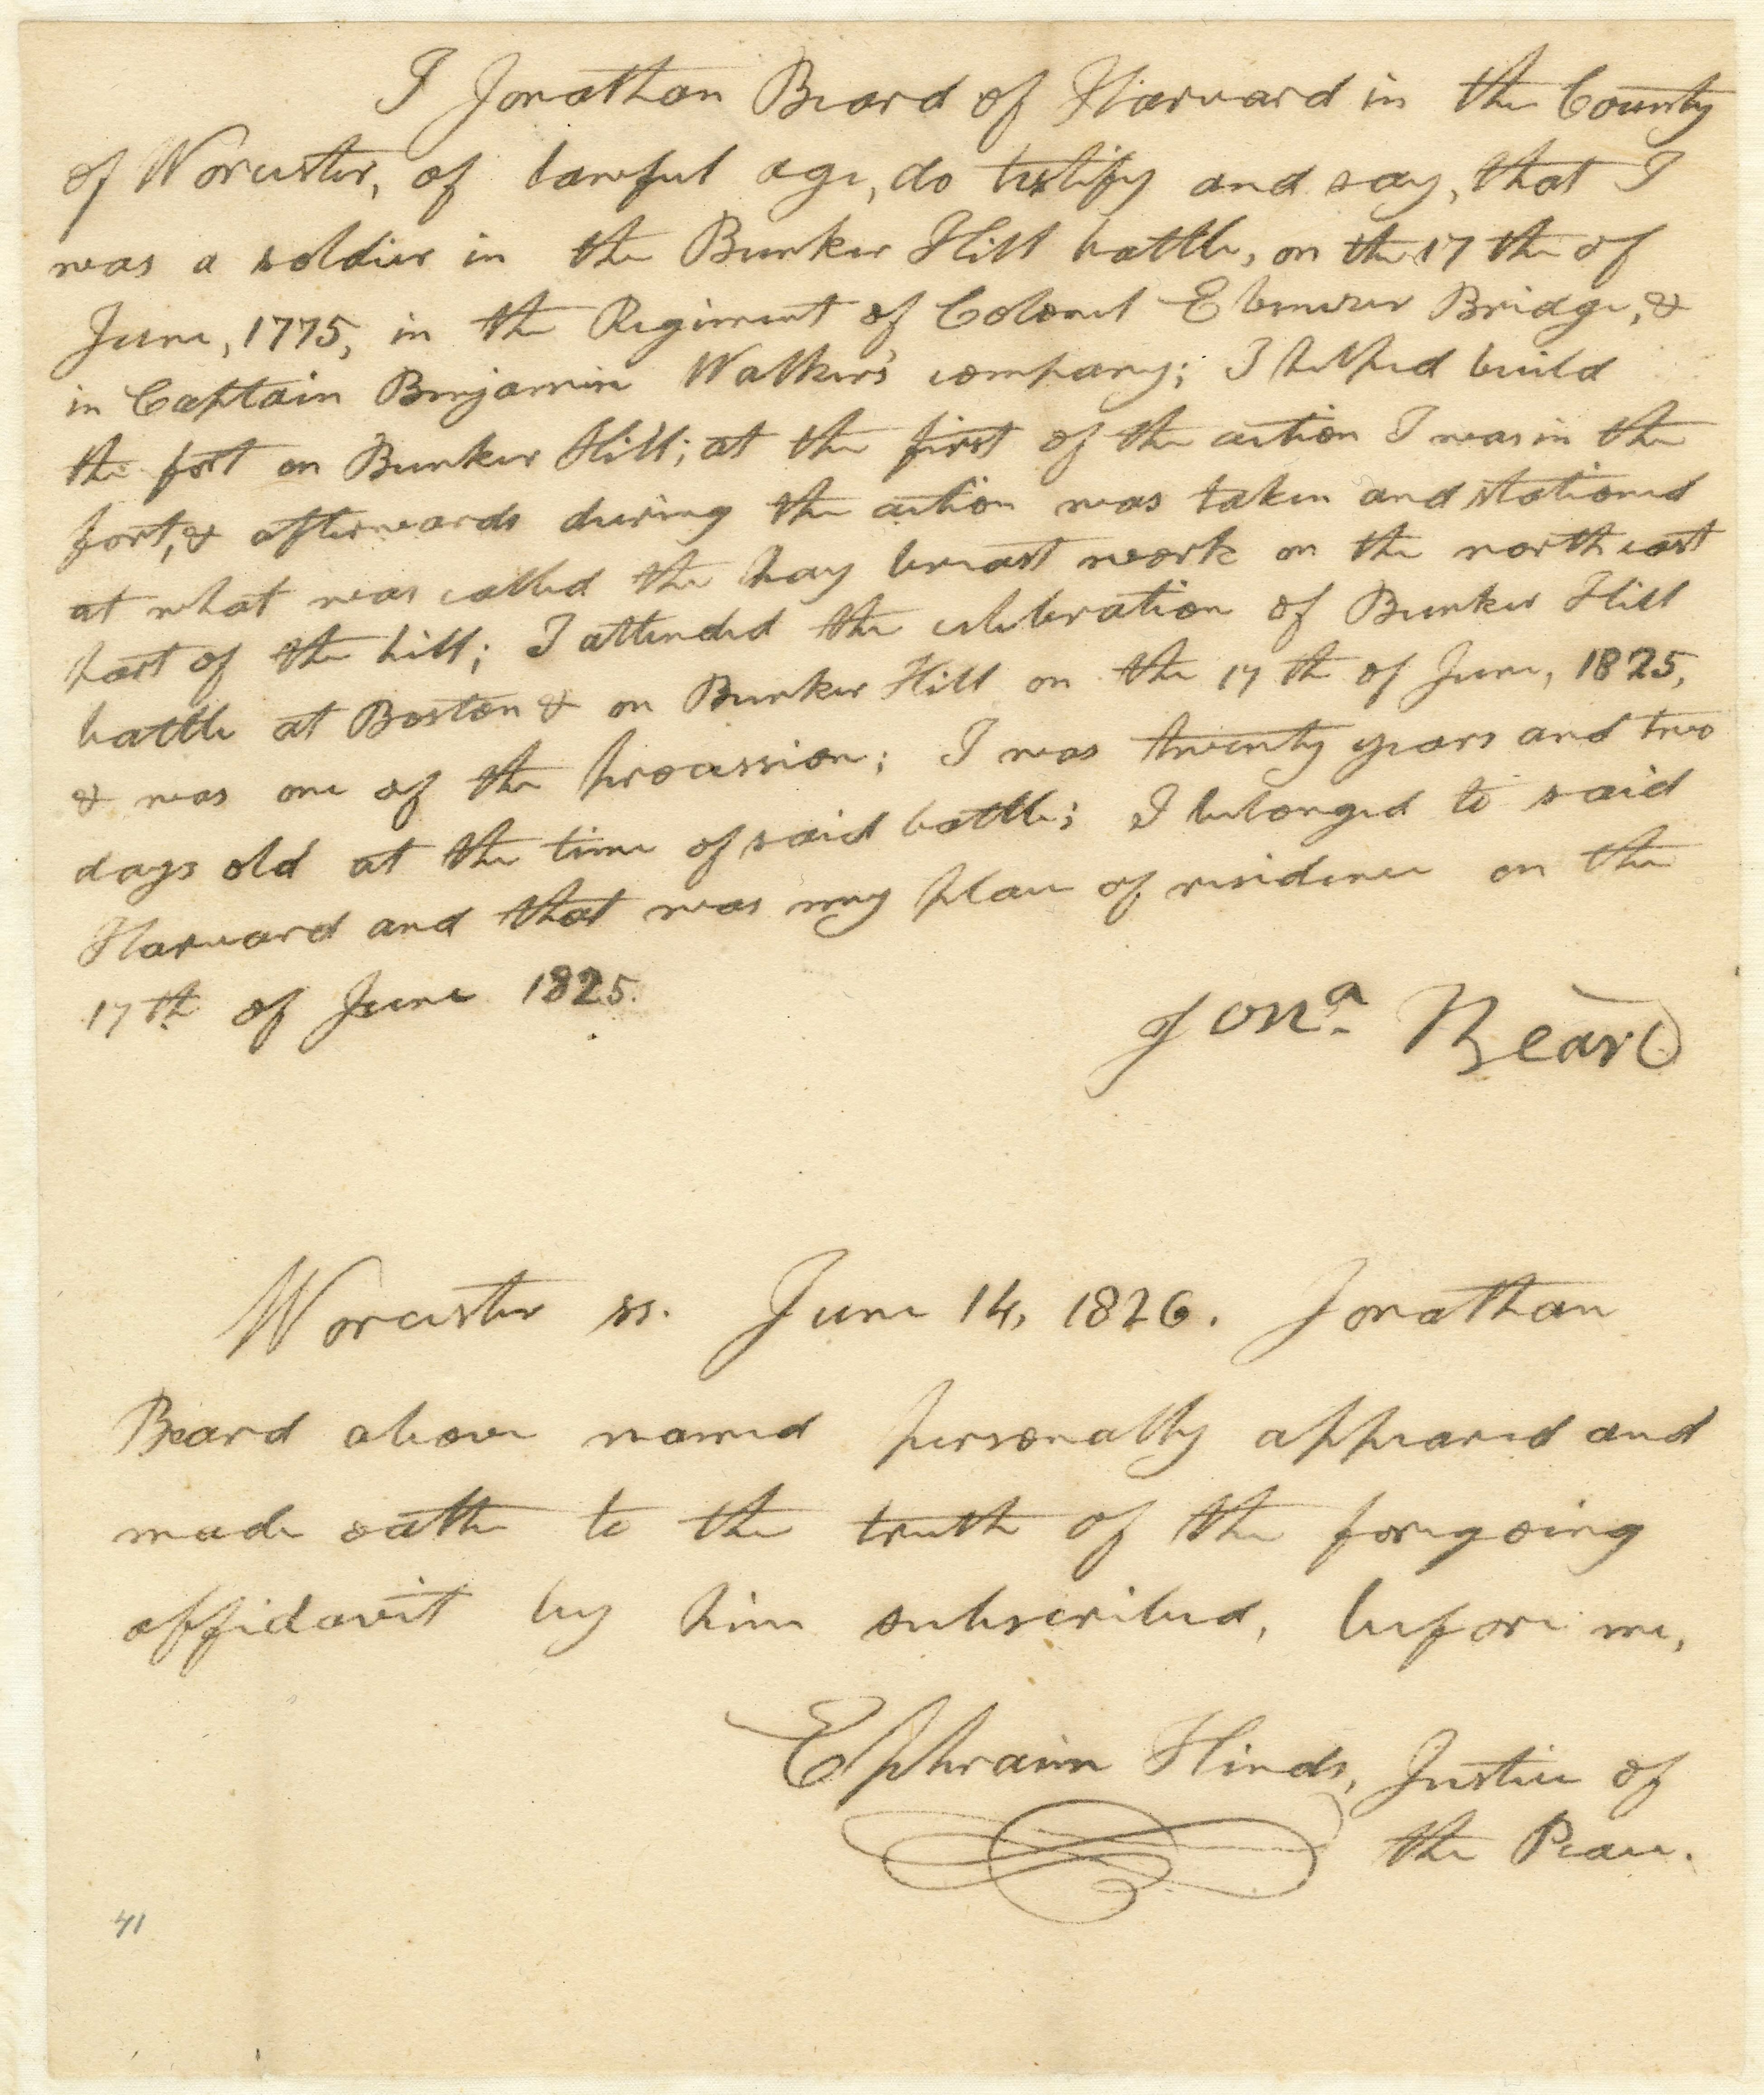 I Jonathan Beard of Harvard in the County
of Worcester, of lawful age, do testify and say, that I
was a soldier in the Bunker Hill battle, on the 17 th of
June, 1775, in the Regiment of Colonel Ebenezer Bridge, &
in Captain Benjamin Walker's company; I helped build
the fort on Bunker Hill; at the first of the action I was in the
fort, & afterwards during the action was taken and stationed
at what was called the hay breast work on the north east
part of the hill; I attended the celebration of Bunker Hill
battle at Boston & on Bunker Hill on the 17 th of June, 1825,
& was one of the procession; I was twenty years and two
days old at the time of said battle; I belonged to said
Harvard and that was my place of residence on the
17th of June 1825.
Jonª Beard
Worcester ss. June 14, 1826. Jonathan
Beard above named personally appeared and
made oath to the truth of the foregoing
affidavit by him subscribed, before me,
Ephraim Hinds, Justice of
the Peace.
41